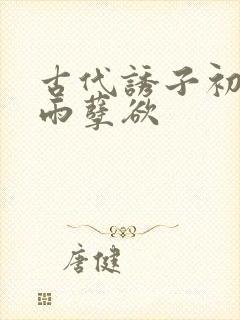 古代誘子初
雨孽欲
唐健